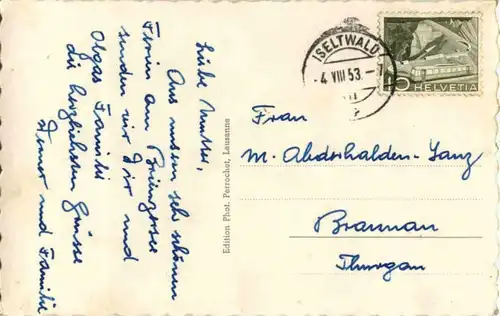 Liebe Mutter,
Aus unsern sehr schönen
Ferien am Brienzersee
senden wir Dir und
Olgas Familie
die herzlichsten Grüsse
Werner und Familie
Edition Phot. Perrochet, Lausanne
ISELTWALD
-4 VIII 53. -7
HELVETIA
Frau
M. Abderhalden-Lanz
Braunau
Thurgau